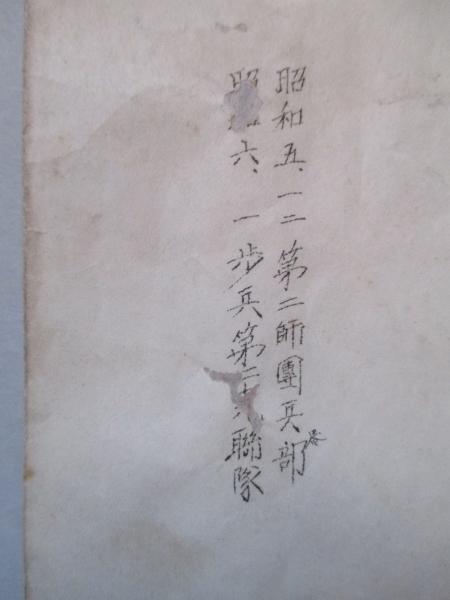 昭和五、一二 第二師團兵器部
昭和六、一 歩兵第二十九聯隊